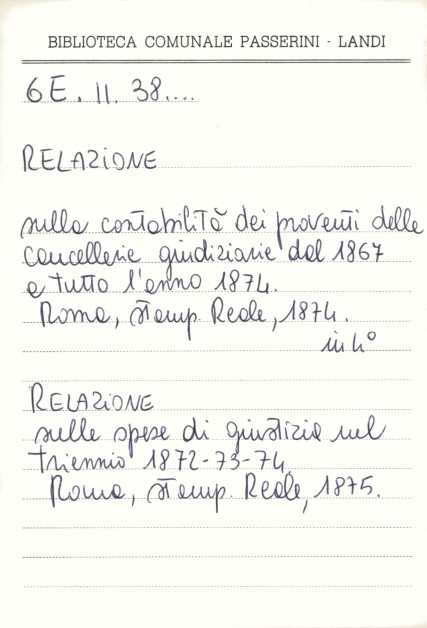 BIBLIOTECA COMUNALE PASSERINI - LANDI
6E. II. 38....
RELAZIONE
sulla contabilità dei proventi delle
cancellerie giudiziarie dal 1867
a tutto l'anno 1874.
Roma, Stamp. Reale, 1874.
in 4°
RELAZIONE
sulle spese di giustizia nel
triennio 1872-73-74.
Roma, Stamp. Reale, 1875.